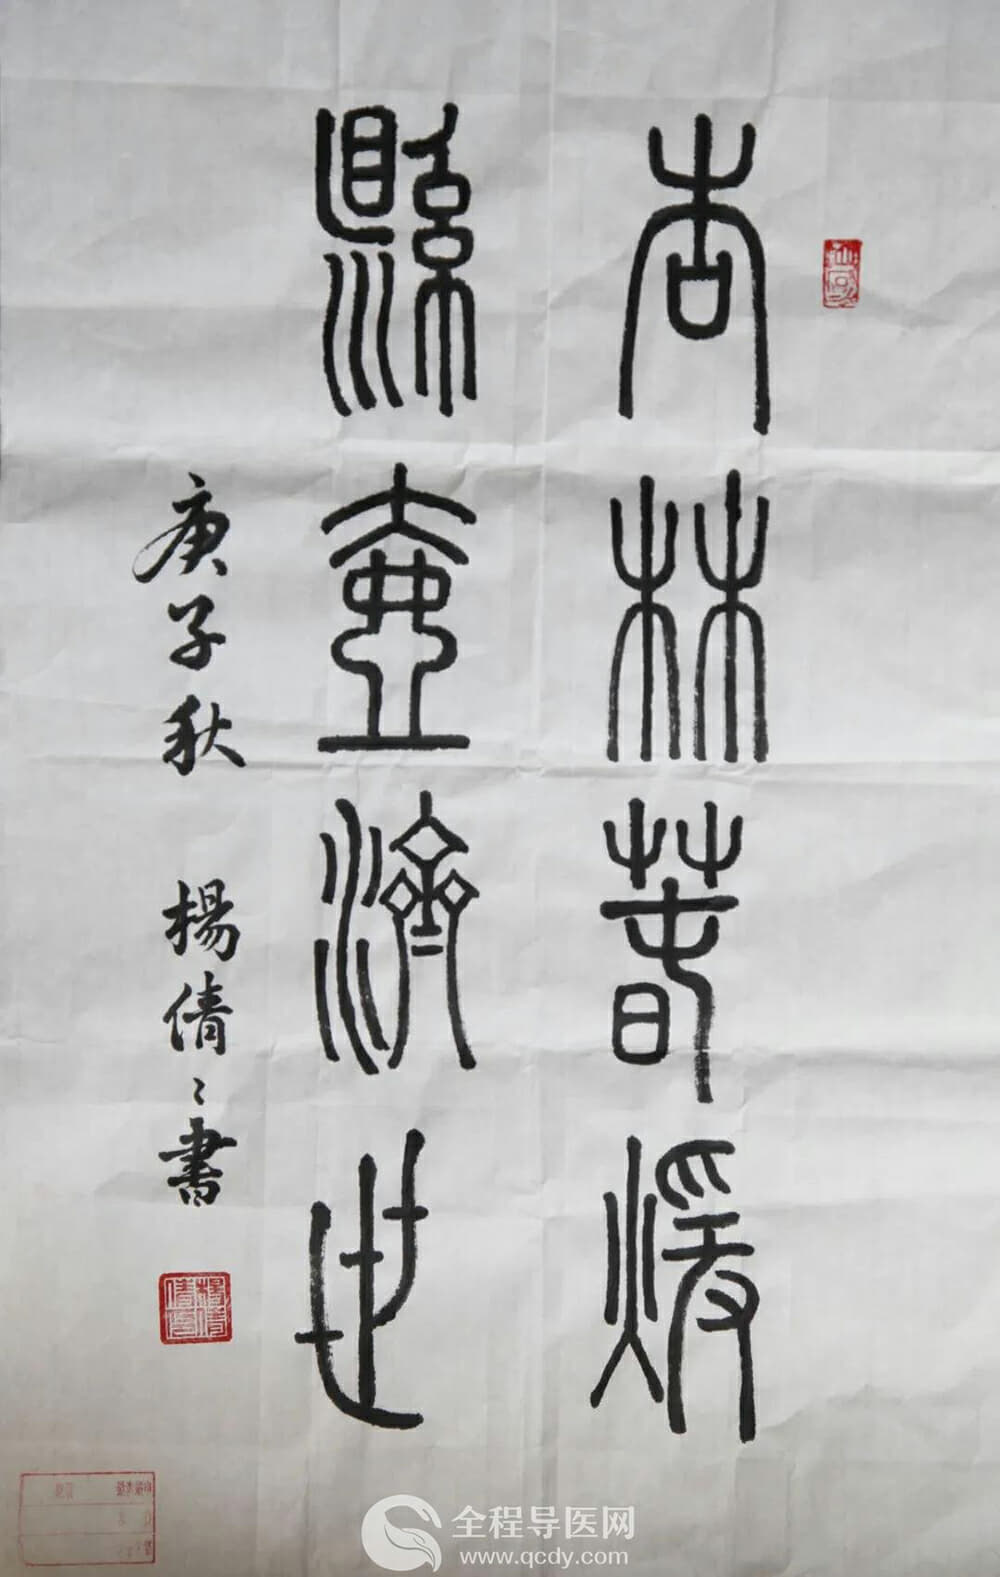 杏林萅煖
縣壺濟世
庚子秋 楊倩〻書
全程导医网
www.qcdy.com